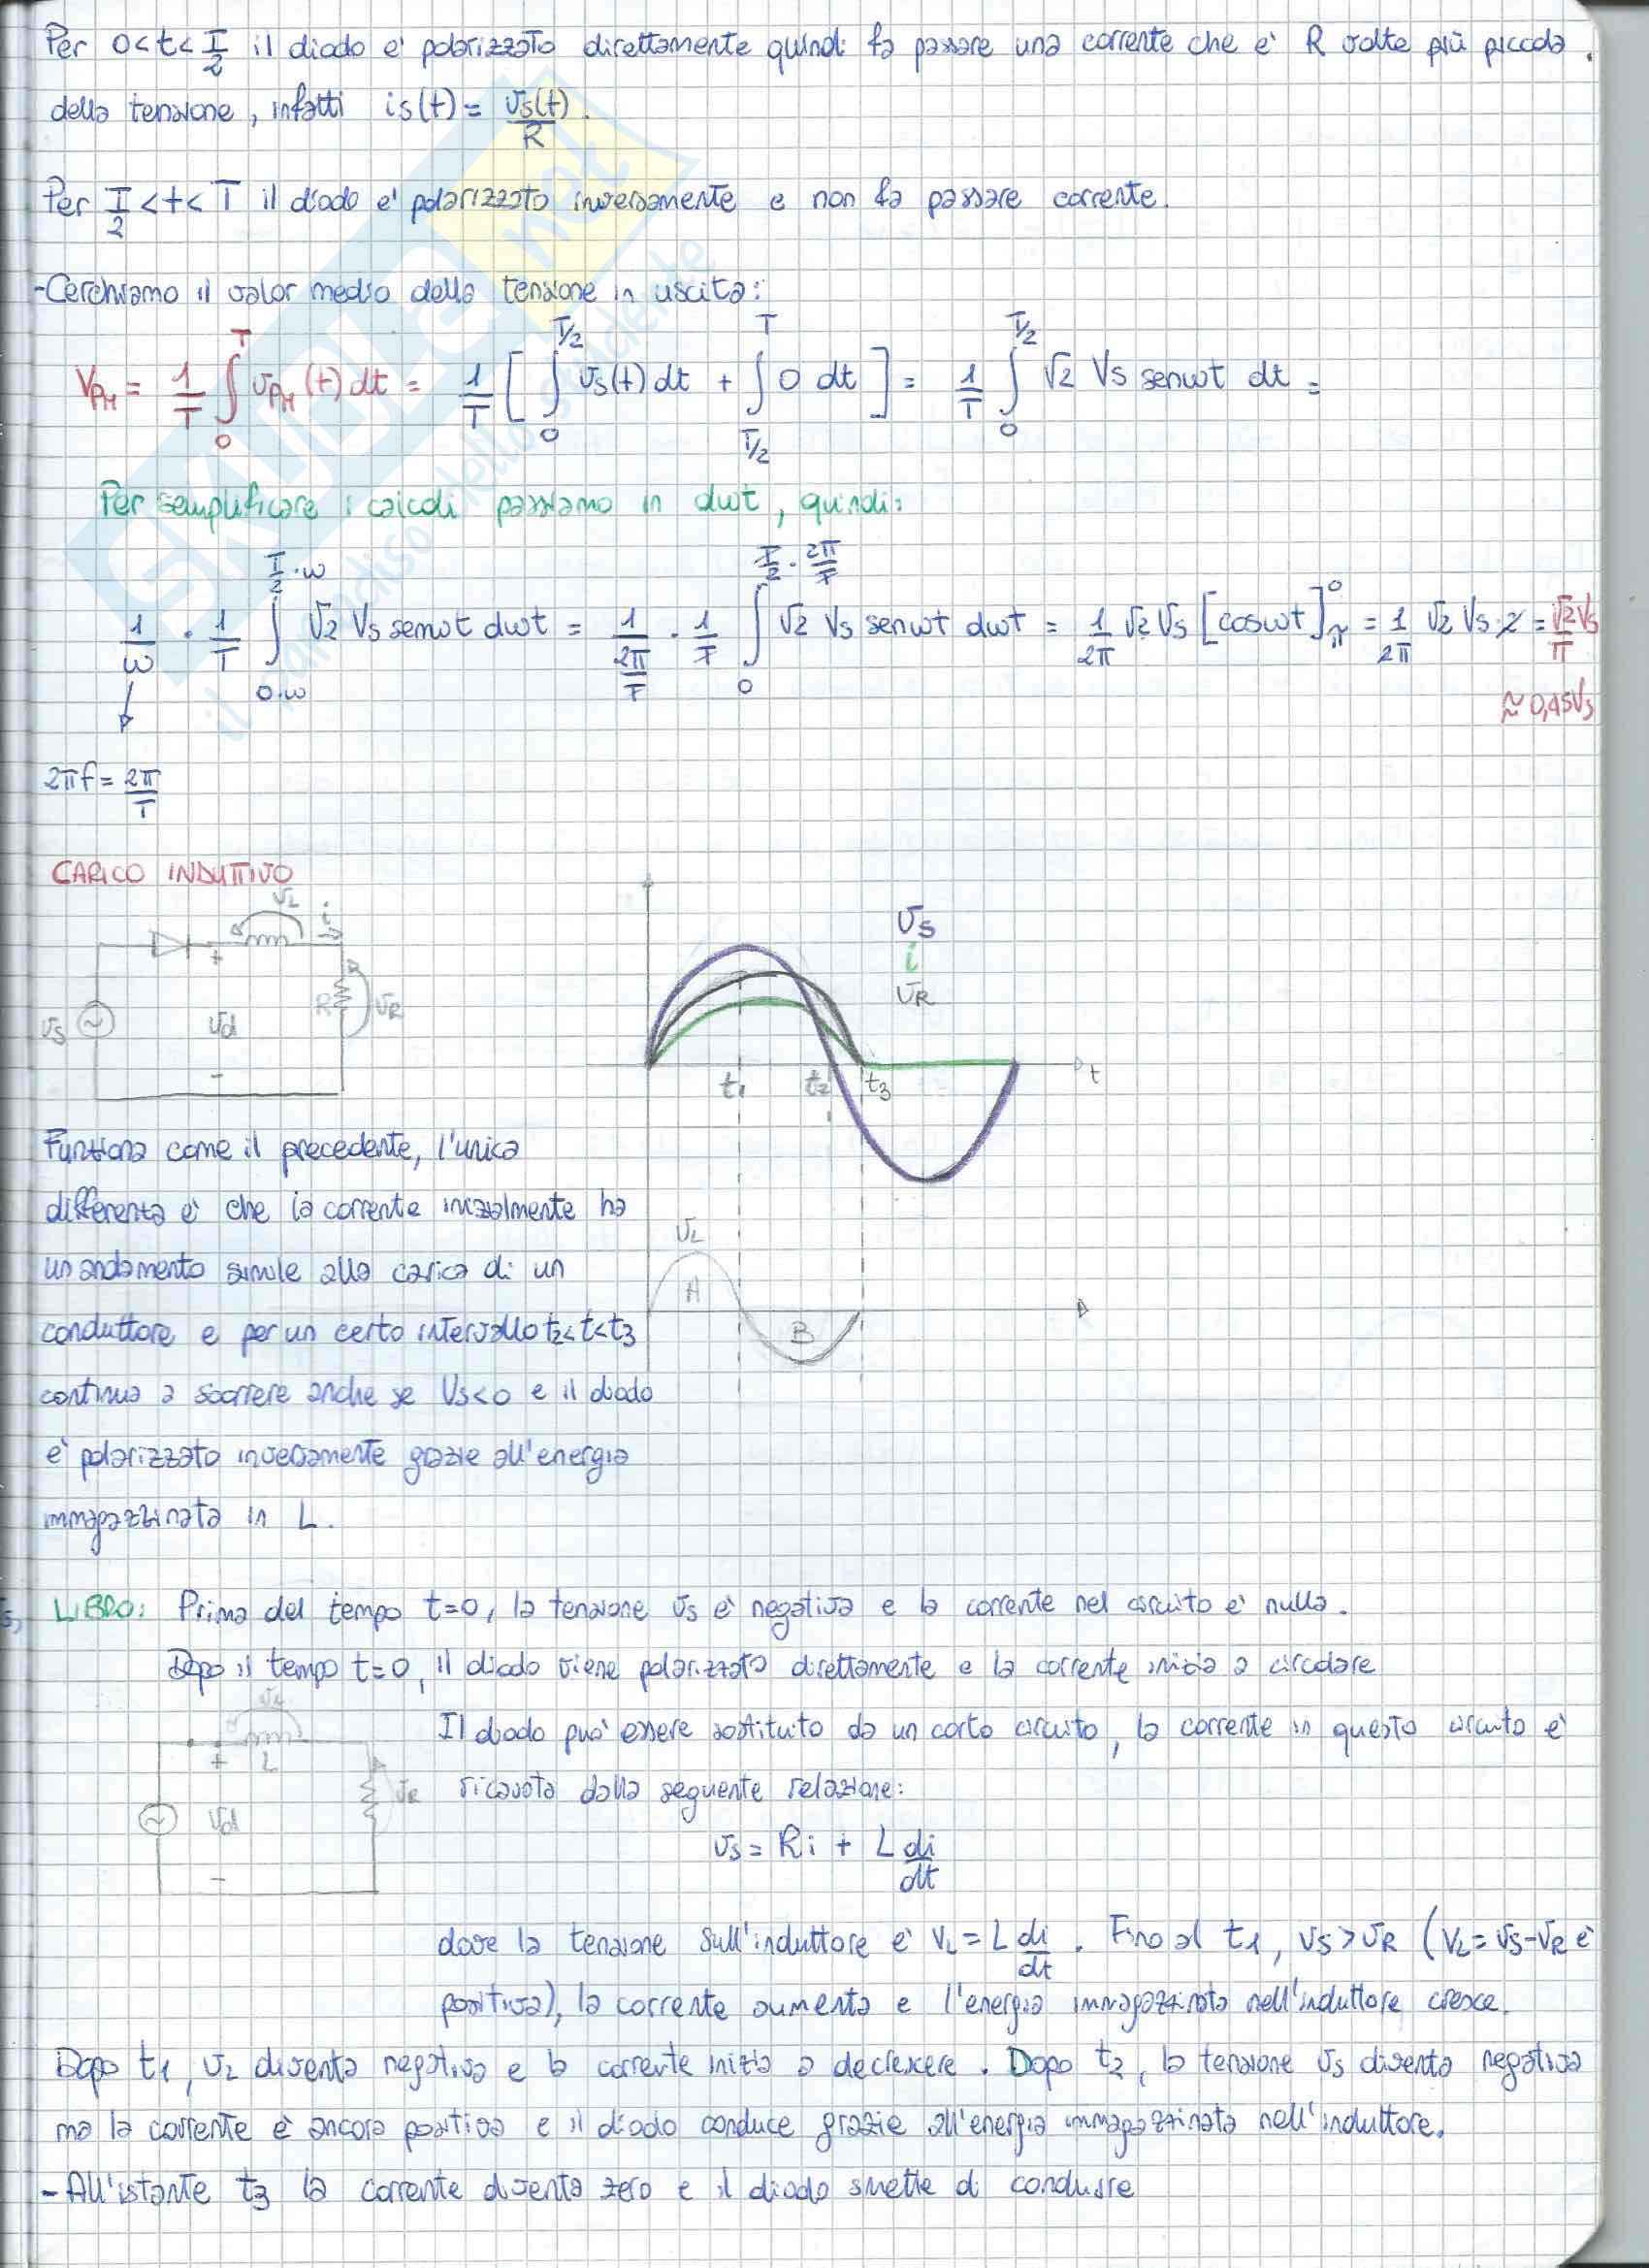 Per 0<t<T/2 il diodo e' polarizzato direttamente quindi fa passare una corrente che e' R volte più piccola.
della tensione, infatti is(t) = vs(t)/R.
Per T/2 <t< T il diodo e' polarizzato inversamente e non fa passare corrente.
-Cerchiamo il valor medio della tensione in uscita:
V_PM = 1/T ∫₀^T v_PM(t) dt = 1/T [ ∫₀^T/2 vs(t) dt + ∫_T/2^T 0 dt ] = 1/T ∫₀^T/2 √2 Vs senωt dt =
Per semplificare i calcoli passiamo in dωt, quindi:
1/ω · 1/T ∫_0·ω^T/2·ω √2 Vs senωt dωt = 1/(2π/T) · 1/T ∫₀^T/2·2π/T √2 Vs senωt dωt = 1/2π √2 Vs [cosωt]_π^0 = 1/2π √2 Vs·2 = √2 Vs/π
≈ 0,45Vs
2πf = 2π/T
CARICO INDUTTIVO
vL
i
+
R
vR
vs
vd
-
vs
i
vR
t1
t2
t3
t
vL
A
B
Funziona come il precedente, l'unica
differenza e' che la corrente inizialmente ha
un andamento simile alla carica di un
conduttore e per un certo intervallo t2<t<t3
continua a scorrere anche se Vs<0 e il diodo
e' polarizzato inversamente grazie all'energia
immagazzinata in L.
LIBRO: Prima del tempo t=0, la tensione vs e' negativa e la corrente nel circuito e' nulla.
Dopo il tempo t=0, il diodo viene polarizzato direttamente e la corrente inizia a circolare
Il diodo puo' essere sostituito da un corto circuito, la corrente in questo circuito e'
ricavata dalla seguente relazione:
vL
+
L
vR
vd
-
vs = Ri + L di/dt
dove la tensione sull'induttore e' VL = L di/dt. Fino al t1, vs>vR (VL=vs-vR e'
positiva), la corrente aumenta e l'energia immagazzinata nell'induttore cresce.
Dopo t1, vL diventa negativa e la corrente inizia a decrescere. Dopo t2, la tensione vs diventa negativa
ma la corrente e' ancora positiva e il diodo conduce grazie all'energia immagazzinata nell'induttore.
- All'istante t3 la corrente diventa zero e il diodo smette di condurre
SKUOLA.net
il paradiso dello studente